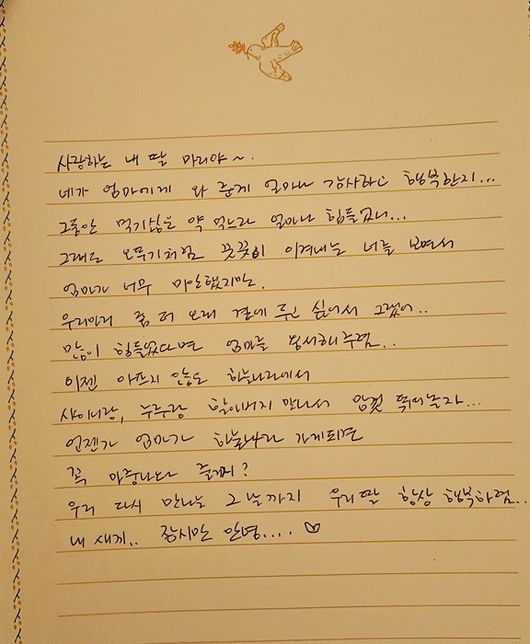 사랑하는 내 딸 마리야~.
네가 엄마에게 와 준게 얼마나 감사하고 행복한지...
그동안 먹기싫은 약 먹느라 얼마나 힘들었니...
그래도 오뚜기처럼 꿋꿋이 이겨내는 너를 보면서
엄마가 너무 미안했지만.
우리마리 좀 더 오래 곁에 두고 싶어서 그랬어..
많이 힘들었다면 엄마를 용서해주렴..
이젠 아프지 않는 하늘나라에서
샤이니랑, 누루랑 할아버지 만나서 맘껏 뛰어놀자...
언젠가 엄마가 하늘나라 가게되면
꼭 마중나와 줄꺼지?
우리 다시 만나는 그 날까지 우리딸 항상 행복하렴..
내 새끼.. 잠시만 안녕.... ♡